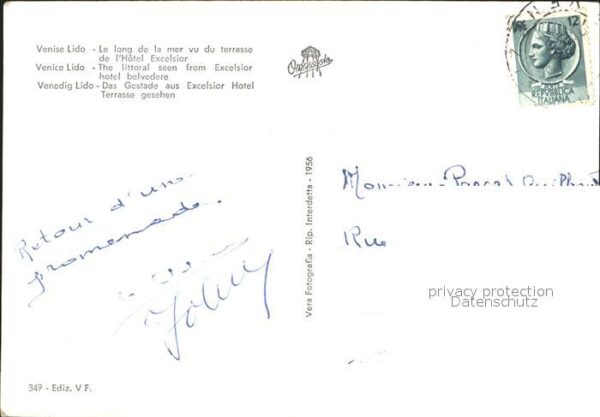 Venise Lido - Le long de la mer vu du terrasse
de l'Hôtel Excelsior
Venice Lido - The littoral seen from Excelsior
hotel belvedere
Venedig Lido - Das Gestade aus Excelsior Hotel
Terrasse gesehen
LIRE 12
REPVBBLICA
ITALIANA
Retour d'une
promenade.
Vera Fotografia - Rip. Interdetta - 1956
Monsieur
Rue
privacy protection
Datenschutz
349 - Ediz. V F.